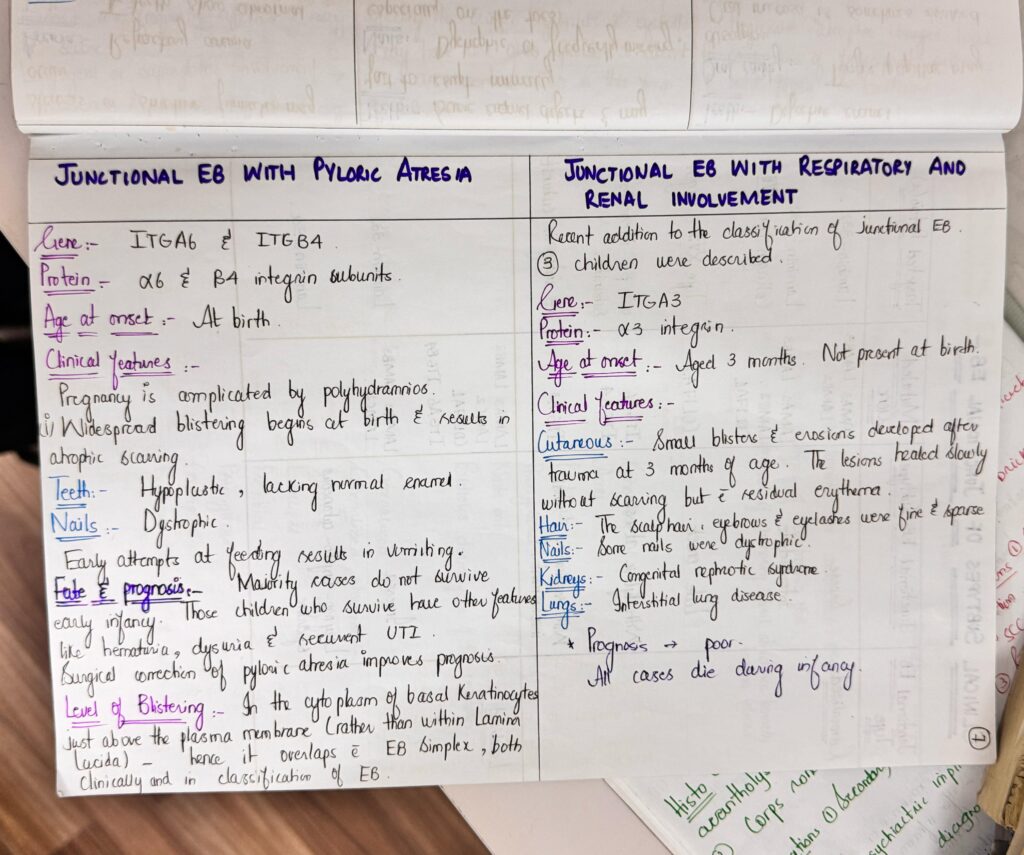 JUNCTIONAL EB WITH PYLORIC ATRESIA
Gene:- ITGA6 & ITGB4.
Protein:- α6 & β4 integrin subunits.
Age at onset:- At birth.
Clinical features:-
Pregnancy is complicated by polyhydramnios.
(i) Widespread blistering begins at birth & results in
atrophic scarring.
Teeth:- Hypoplastic, lacking normal enamel.
Nails:- Dystrophic.
Early attempts at feeding results in vomiting.
Fate & prognosis:- Majority cases do not survive
early infancy. Those children who survive have other features
like hematuria, dysuria & recurrent UTI.
Surgical correction of pyloric atresia improves prognosis.
Level of Blistering:- In the cytoplasm of basal keratinocytes
just above the plasma membrane (rather than within Lamina
lucida) - hence it overlaps c̄ EB simplex, both
clinically and in classification of EB.
JUNCTIONAL EB WITH RESPIRATORY AND
RENAL INVOLVEMENT
Recent addition to the classification of Junctional EB.
③ children were described.
Gene:- ITGA3
Protein:- α3 integrin.
Age at onset:- Aged 3 months. Not present at birth.
Clinical features:-
Cutaneous:- Small blisters & erosions developed after
trauma at 3 months of age. The lesions healed slowly
without scarring but c̄ residual erythema.
Hair:- The scalp hair, eyebrows & eyelashes were fine & sparse
Nails:- Some nails were dystrophic.
Kidneys:- Congenital nephrotic syndrome.
Lungs:- Interstitial lung disease.
* Prognosis → poor.
All cases die during infancy.
①
Histo
acantholys
Corps ron
ations ① Secondary
sychiatric impl
diagno